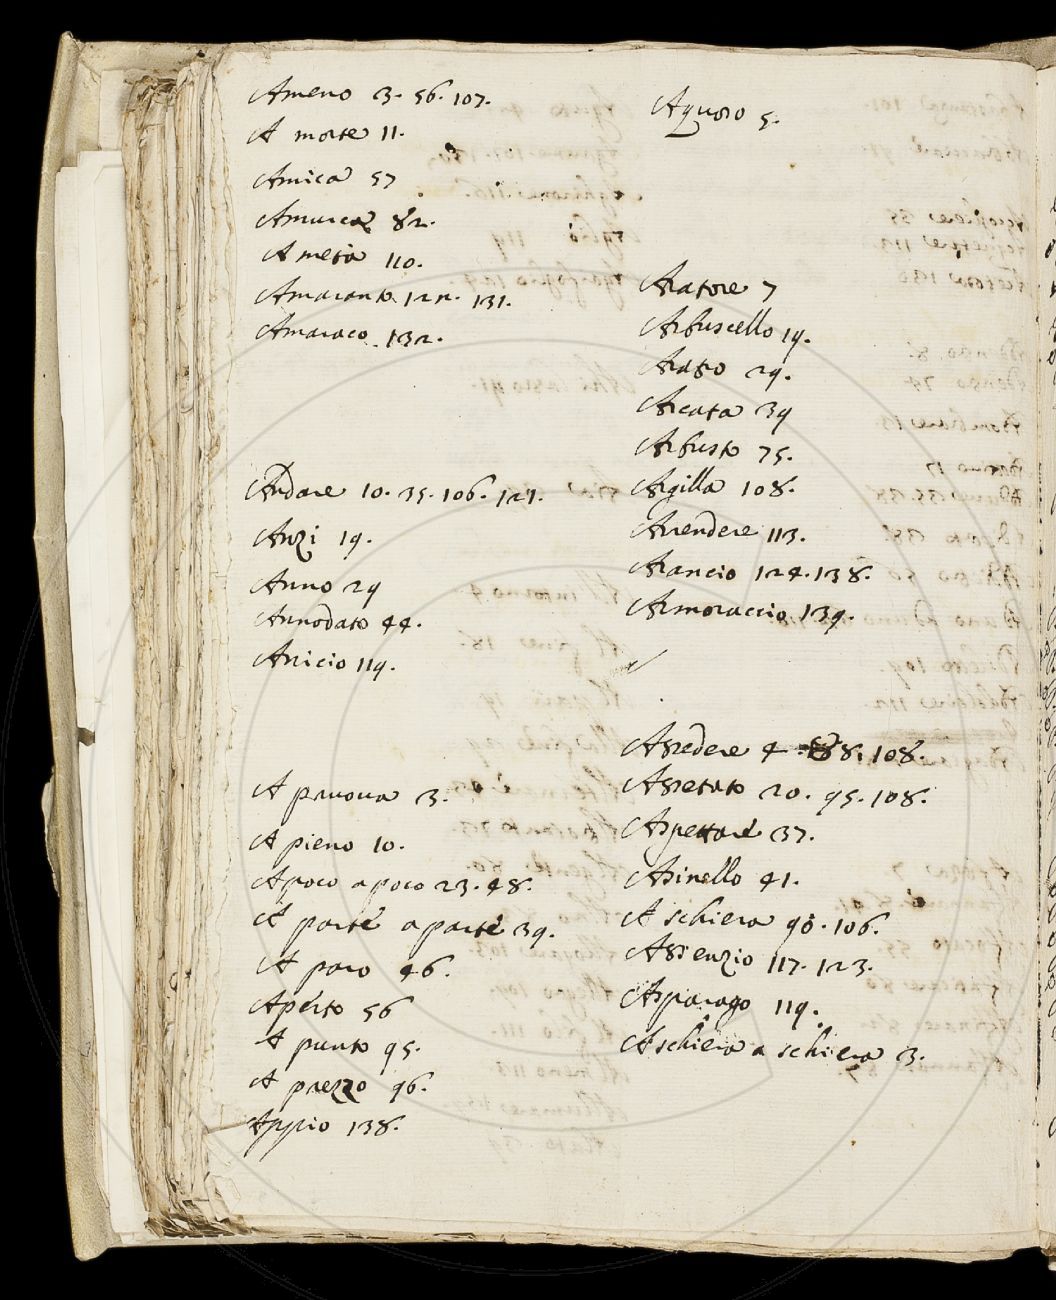 Ameno 3. 56. 107.
A morte 11.
Amica 57
Amurca 82.
A metà 110.
Amaranto 122. 131.
Amaraco 132.
Andare 10. 35. 106. 127.
Anzi 19.
Anno 29
Annodato 44.
Anicio 119.
A pruova 3.
A pieno 10.
Apoco apoco 23. 48.
A parte a parte 39.
A paro 46.
Aperto 56
A punto 95.
A prezzo 96.
Appio 138.
Aquoso 5.
Aratore 7
Arbuscello 19.
Aratro 29.
Arcata 39
Arbusto 75.
Argilla 108.
Arrendere 113.
Arancio 124. 138.
Armoraccio 139.
Assedere 4. 88. 108.
Assetato 20. 95. 108.
Aspettare 37.
Asinello 41.
A schiera 90. 106.
Assenzio 117. 123.
Asparago 119.
A schiera a schiera 3.